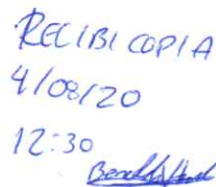 RECIBI COPIA
4/08/20
12:30